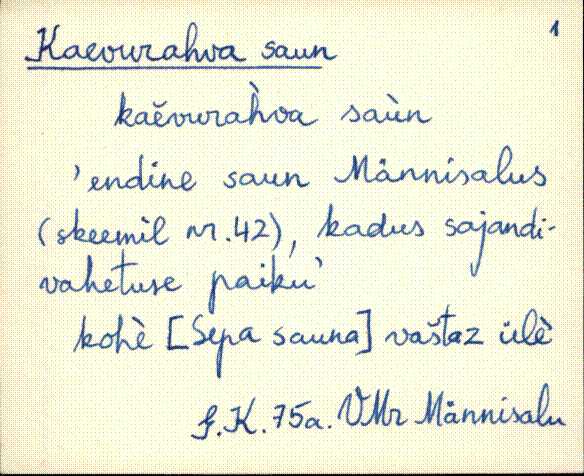 1
Kaevurahva saun
kaĕvurah̀va saùn
'endine saun Männisalus
(skeemil nr. 42), kadus sajandi-
vahetuse paiku'
kohè [Sepa sauna] vaštaz ülè
J.K. 75a. VMr Männisalu